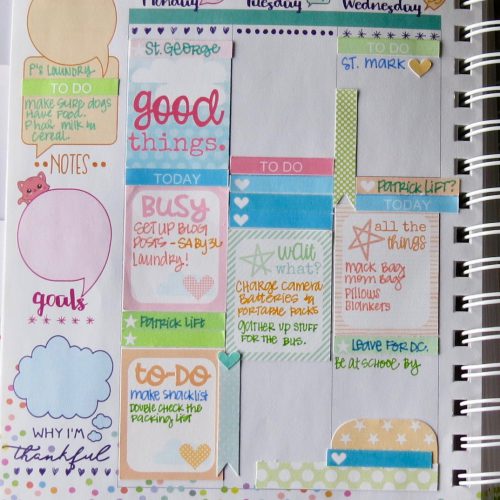 Monday
Tuesday
Wednesday
P's LAUNDRY
TO DO
MAKE SURE DOGS
HAVE FOOD.
MILK IN
CEREAL.
NOTES
goals
WHY I'M
thankful
ST. GEORGE
good
things.
TODAY
BUSY
SET UP BLOG
POSTS - SA BY 3L
LAUNDRY!
PATRICK LIFT
to-DO
MAKE SNACK LIST
DOUBLE CHECK THE
PACKING LIST
TO DO
wait
what?
CHARGE CAMERA
BATTERIES IN
PORTABLE PACKS
GATHER UP STUFF
FOR THE BUS.
TO DO
ST. MARK
PATRICK LIFT?
TODAY
all the
things
MACK BAG
MOM BAG
PILLOWS
BLANKETS
LEAVE FOR DC.
BE AT SCHOOL BY